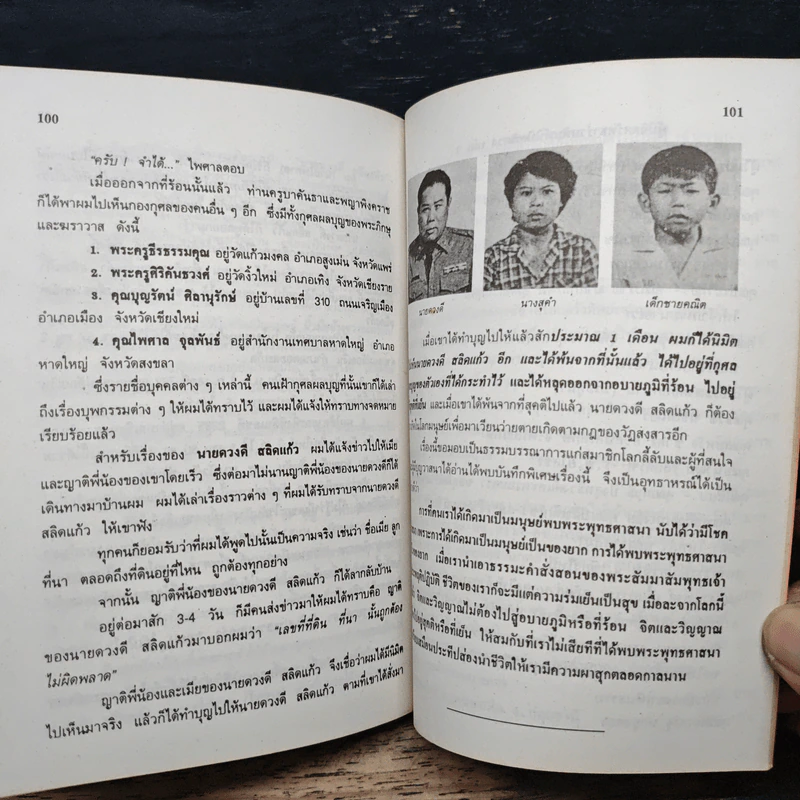 100
"ครับ ! จำได้..." ไพศาลตอบ
เมื่อออกจากที่ร้อนนั้นแล้ว ท่านครูบาคันธาและพญาพิงคราช
ก็ได้พาผมไปเห็นกองกุศลของคนอื่น ๆ อีก ซึ่งมีทั้งกุศลผลบุญของพระภิกษุ
และฆราวาส ดังนี้
1. พระครูธีรธรรมคุณ อยู่วัดแก้วมงคล อำเภอสูงเม่น จังหวัดแพร่
2. พระครูศิริคันธวงศ์ อยู่วัดงิ้วใหม่ อำเภอเทิง จังหวัดเชียงราย
3. คุณบุญรัตน์ ศิลานุรักษ์ อยู่บ้านเลขที่ 310 ถนนเจริญเมือง
อำเภอเมือง จังหวัดเชียงใหม่
4. คุณไพศาล จุลพันธ์ อยู่สำนักงานเทศบาลหาดใหญ่ อำเภอ
หาดใหญ่ จังหวัดสงขลา
ซึ่งรายชื่อบุคคลต่าง ๆ เหล่านี้ คนเฝ้ากุศลผลบุญที่นั้นเขาก็ได้เล่า
ถึงเรื่องบุพกรรมต่าง ๆ ให้ผมได้ทราบไว้ และผมได้แจ้งให้ทราบทางจดหมาย
เรียบร้อยแล้ว
สำหรับเรื่องของ นายดวงดี สลิดแก้ว ผมได้แจ้งข่าวไปให้เมีย
และญาติพี่น้องของเขาโดยเร็ว ซึ่งต่อมาไม่นานญาติพี่น้องของนายดวงดีก็ได้
เดินทางมาบ้านผม ผมได้เล่าเรื่องราวต่าง ๆ ที่ผมได้รับทราบจากนายดวงดี
สลิดแก้ว ให้เขาฟัง
ทุกคนก็ยอมรับว่าที่ผมได้พูดไปนั้นเป็นความจริง เช่นว่า ชื่อเมีย ลูก
ที่นา ตลอดถึงที่ดินอยู่ที่ไหน ถูกต้องทุกอย่าง
จากนั้น ญาติพี่น้องของนายดวงดี สลิดแก้ว ก็ได้ลากลับบ้าน
อยู่ต่อมาสัก 3-4 วัน ก็มีคนส่งข่าวมาให้ผมได้ทราบคือ ญาติ
ของนายดวงดี สลิดแก้วมาบอกผมว่า "เลขที่ที่ดิน ที่นา นั้นถูกต้อง
ไม่ผิดพลาด"
ญาติพี่น้องและเมียของนายดวงดี สลิดแก้ว จึงเชื่อว่าผมได้มีนิมิต
ไปเห็นมาจริง แล้วก็ได้ทำบุญไปให้นายดวงดี สลิดแก้ว ตามที่เขาได้สั่งมา
101
นายดวงดี
นางสุคำ
เด็กชายคณิต
เมื่อเขาได้ทำบุญไปให้แล้วสักประมาณ 1 เดือน ผมก็ได้นิมิต
นายดวงดี สลิดแก้ว อีก และได้พ้นจากที่นั้นแล้ว ได้ไปอยู่ที่กุศล
ของตัวเองที่ได้กระทำไว้ และได้หลุดออกจากอบายภูมิที่ร้อน ไปอยู่
ที่เย็น และเมื่อเขาได้พ้นจากที่สุคติไปแล้ว นายดวงดี สลิดแก้ว ก็ต้อง
ในโลกมนุษย์เพื่อมาเวียนว่ายตายเกิดตามกฎของวัฏสงสารอีก
เรื่องนี้ขอมอบเป็นธรรมบรรณาการแก่สมาชิกโลกลี้ลับและผู้ที่สนใจ
วิญญาสนาได้อ่านได้พบบันทึกพิเศษเรื่องนี้ จึงเป็นอุทธาหรณ์ได้เป็น
การที่คนเราได้เกิดมาเป็นมนุษย์พบพระพุทธศาสนา นับได้ว่ามีโชค
เพราะการได้เกิดมาเป็นมนุษย์เป็นของยาก การได้พบพระพุทธศาสนา
ยาก เมื่อเรานำเอาธรรมะคำสั่งสอนของพระสัมมาสัมพุทธเจ้า
ปฏิบัติ ชีวิตของเราก็จะมีแต่ความร่มเย็นเป็นสุข เมื่อละจากโลกนี้
จิตและวิญญาณไม่ต้องไปสู่อบายภูมิหรือที่ร้อน จิตและวิญญาณ
อยู่สุคติหรือที่เย็น ให้สมกับที่เราไม่เสียทีที่ได้พบพระพุทธศาสนา
เสมือนประทีปส่องนำชีวิตให้เรามีความผาสุกตลอดกาลนาน